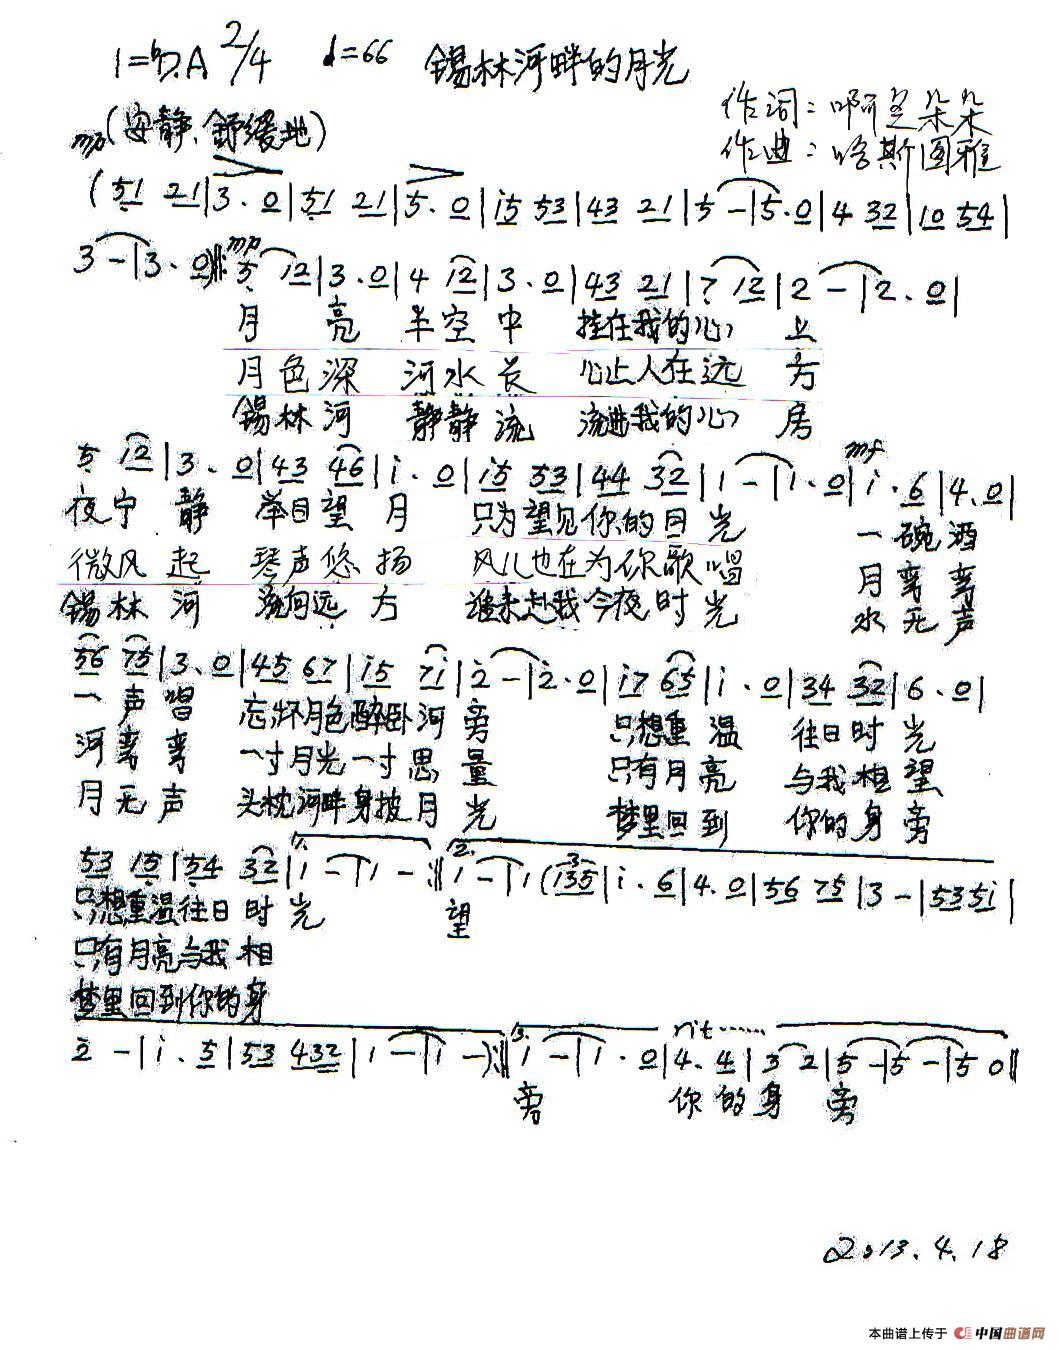 1=ᵇD.A 2/4 ♩=66 锡林河畔的月光
作词：啊芝朵朵
mp (安静、舒缓地)
作曲：哈斯图雅
(51 21|3.0|51 21|5.0|i5 53|43 21|5-|5.0|4 32|10 54|
3-|3.0):‖: mp 5 12|3.0|4 12|3.0|43 21|7 12|2-|2.0|
月 亮 半空中 挂在我的心 上
月色深 河水长 心上人在远 方
锡林河 静静流 流进我的心 房
5 12|3.0|43 46|i.0|i5 53|44 32|1-|1.0| mf i.6|4.0|
夜宁静 举目望月 只为望见你的目光 一碗酒
微风起 琴声悠扬 风儿也在为你歌唱 月弯弯
锡林河 流向远方 谁来赴我今夜时光 水无声
56 75|3.0|45 67|i5 7i|2-|2.0|i7 65|i.0|34 32|6.0|
一声唱 忘怀月色醉卧河旁 只想重温 往日时光
河弯弯 一寸月光一寸思量 只有月亮 与我相望
月无声 头枕河畔身披月光 梦里回到 你的身旁
53 15|54 32| 1. 1-|1-:‖ 2. 1-|1(3 135|i.6|4.0|56 75|3-|535i|
只想重温往日时光 望
只有月亮与我相
梦里回到你的身
2-|i.5|53 432|1-|1-):‖ 3. 1-|1.0| rit…… 4.4|3 2|5-|5-|5 0‖
旁 你的身 旁
2013.4.18
本曲谱上传于 中国曲谱网